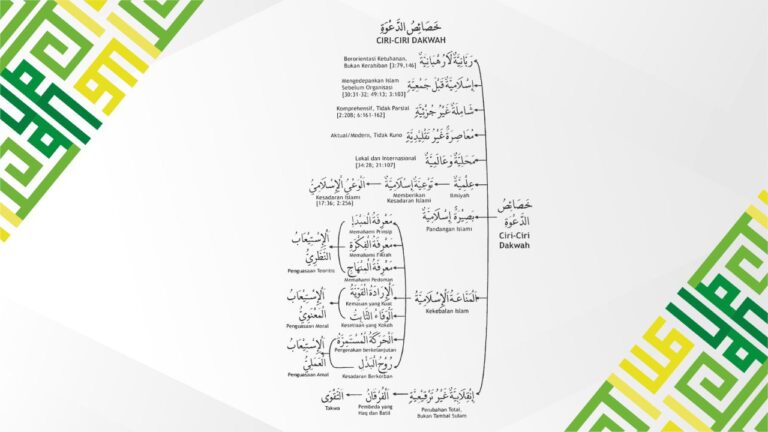 خَصَائِصُ الدَّعْوَةِ
CIRI-CIRI DAKWAH
رَبَّانِيَّةٌ لَا رُهْبَانِيَّةٌ
Berorientasi Ketuhanan,
Bukan Kerahiban [3:79,146]
إِسْلَامِيَّةٌ قَبْلَ جَمْعِيَّةٍ
Mengedepankan Islam
Sebelum Organisasi
[30:31-32; 49:13; 3:103]
شَامِلَةٌ غَيْرُ جُزْئِيَّةٍ
Komprehensif, Tidak Parsial
[2:208; 6:161-162]
مُعَاصِرَةٌ غَيْرُ تَقْلِيْدِيَّةٍ
Aktual/Modern, Tidak Kuno
مَحَلِيَّةٌ وَعَالَمِيَّةٌ
Lokal dan Internasional
[34:28; 21:107]
عِلْمِيَّةٌ
Ilmiyah
تَوْعِيَةٌ إِسْلَامِيَّةٌ
Memberikan
Kesadaran Islami
اَلْوَعْيُ الْإِسْلَامِيُّ
Kesadaran Islami
[17:36; 2:256]
خَصَائِصُ
الدَّعْوَةِ
Ciri-Ciri
Dakwah
بَصِيْرَةٌ إِسْلَامِيَّةٌ
Pandangan Islami
اَلْمَنَاعَةُ الْإِسْلَامِيَّةُ
Kekebalan Islam
مَعْرِفَةُ الْمَبْدَإِ
Memahami Prinsip
مَعْرِفَةُ الْفِكْرَةِ
Memahami Fikrah
مَعْرِفَةُ الْمِنْهَاجِ
Memahami Pedoman
اَلْإِسْتِيْعَابُ
النَّظَرِيُّ
Penguasaan Teoritis
اَلْإِرَادَةُ الْقَوِيَّةُ
Kemauan yang Kuat
اَلْوَفَاءُ الثَّابِتُ
Kesetiaan yang Kokoh
اَلْإِسْتِيْعَابُ
الْمَعْنَوِيُّ
Penguasaan Moral
اَلْحَرَكَةُ الْمُسْتَمِرَّةُ
Pergerakan Berkelanjutan
رُوْحُ الْبَذْلِ
Kesadaran Berkorban
اَلْإِسْتِيْعَابُ
الْعَمَلِيُّ
Penguasaan Amal
إِنْقِلَابِيَّةٌ غَيْرُ تَرْقِيْعِيَّةٍ
Perubahan Total,
Bukan Tambal Sulam
اَلْفُرْقَانُ
Pembeda yang
Haq dan Batil
اَلتَّقْوَى
Takwa